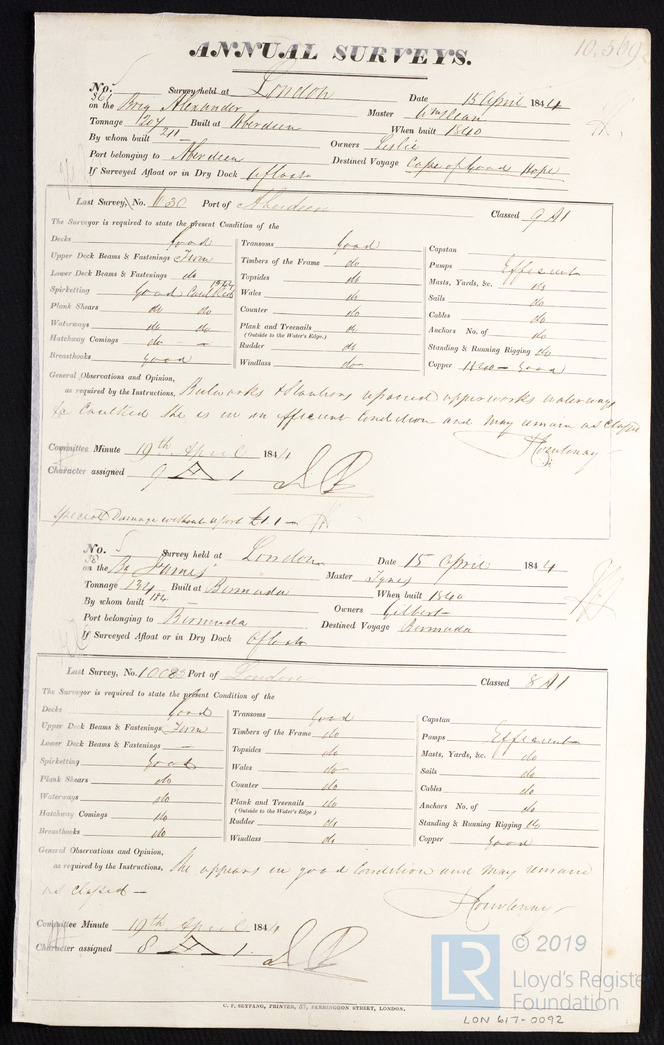 10.569
ANNUAL SURVEYS.
No. 5 Survey held at London Date 15 April 1844
361 on the Brig Alexander Master
Tonnage 207 Built at Aberdeen When built 1840
By whom built 211 Owners Leslie
Port belonging to Aberdeen Destined Voyage Cape of Good Hope
If Surveyed Afloat or in Dry Dock Afloat
Last Survey, No. 630 Port of Aberdeen Classed 9 A1
The Surveyor is required to state the present Condition of the
Decks Good Transoms Good Capstan
Upper Deck Beams & Fastenings Firm Timbers of the Frame do Pumps Efficient
Lower Deck Beams & Fastenings do Topsides do Masts, Yards, &c. do
Spirketting Good Caulked 1844 Wales do Sails do
Plank Shears do do Counter do Cables do
Waterways do do Plank and Treenails do Anchors No. of do
(Outside to the Water's Edge.)
Hatchway Comings do Rudder do Standing & Running Rigging do
Breasthooks Good Windlass do Copper 1840 - Good
General Observations and Opinion,
as required by the Instructions, Bulworks & Stantions upperworks waterways
Caulked She is in an efficient Condition and may remain as Classed
Courtenay
Committee Minute 19th April 1844
Character assigned 9 A 1
Special Damage without report £1 1 -
No. 5 Survey held at London Date 15 April 1844
38 on the James Master Tynes
Tonnage 134 Built at Bermuda When built 1840
By whom built 184 Owners Gilbert
Port belonging to Bermuda Destined Voyage Bermuda
If Surveyed Afloat or in Dry Dock Afloat
Last Survey, No. 10083 Port of London Classed 8 A1
The Surveyor is required to state the present Condition of the
Decks Good Transoms Good Capstan
Upper Deck Beams & Fastenings Firm Timbers of the Frame do Pumps Efficient
Lower Deck Beams & Fastenings — Topsides do Masts, Yards, &c. do
Spirketting Good Wales do Sails do
Plank Shears do Counter do Cables do
Waterways do Plank and Treenails do Anchors No. of do
(Outside to the Water's Edge.)
Hatchway Comings do Rudder do Standing & Running Rigging do
Breasthooks do Windlass do Copper Good
General Observations and Opinion,
as required by the Instructions, She appears in good Condition and may remain
as Classed —
Courtenay
Committee Minute 19th April 1844
Character assigned 8 A 1.
C. F. SEYFANG, PRINTER, 57, FARRINGDON STREET, LONDON.
LR © 2019
Lloyd's Register
Foundation
LON 617-0092